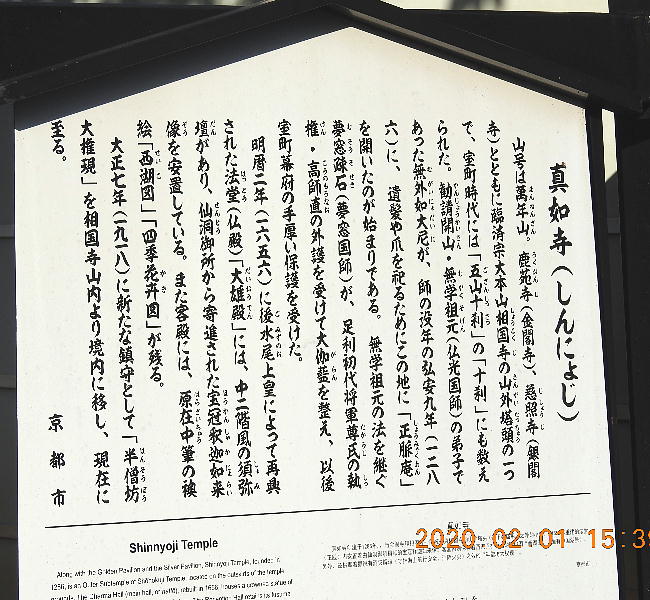 真如寺(しんにょじ)
山号は萬年山。鹿苑寺(金閣寺)、慈照寺(銀閣
寺)とともに臨済宗大本山相国寺の山外塔頭の一つ
で、室町時代には「五山十刹」の「十刹」にも数え
られた。勧請開山・無学祖元(仏光国師)の弟子で
あった無外如大尼が、師の没年の弘安九年(一二八
六)に、遺髪や爪を祀るためにこの地に「正脈庵」
を開いたのが始まりである。無学祖元の法を継ぐ
夢窓疎石(夢窓国師)が、足利初代将軍尊氏の執
権・高師直の外護を受けて大伽藍を整え、以後
室町幕府の手厚い保護を受けた。
明暦二年(一六五六)に後水尾上皇によって再興
された法堂(仏殿)「大雄殿」には、中二階風の須弥
壇があり、仙洞御所から寄進された宝冠釈迦如来
像を安置している。また客殿には、原在中筆の襖
絵「西湖図」「四季花卉図」が残る。
大正七年(一九一八)に新たな鎮守として「半僧坊
大権現」を相国寺山内より境内に移し、現在に
至る。
京都市
Shinnyoji Temple
Along with the Golden Pavilion and the Silver Pavilion, Shinnyo Temple, founded in
1286, is an Outer Subtemple of Shōkokuji Temple, located on the outskirts of the temple
真如寺
2020.02.01 15:39